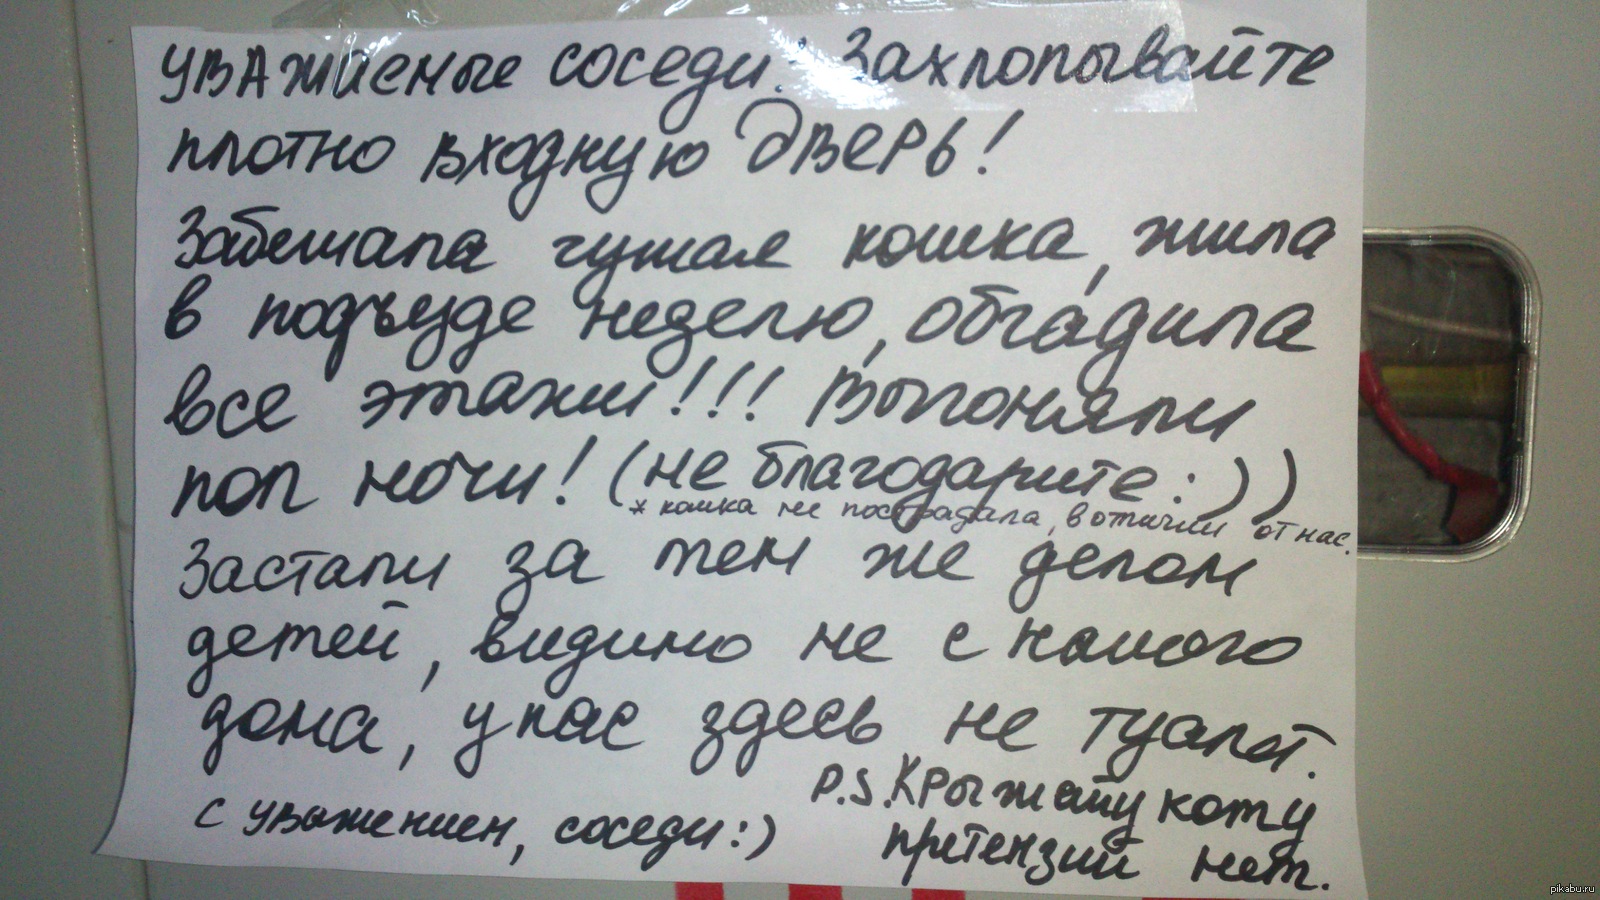 уважаемые соседи! Захлопывайте
плотно входную дверь!
Забежала чужая кошка, жила
в подъезде неделю, обгадила
все этажи!!! Выгоняли
пол ночи! (не благодарите :))
* кошка не пострадала, в отличии от нас.
Застали за тем же делом
детей, видимо не с нашего
дома, у нас здесь не туалет.
P.S. К рыжему коту
претензий нет.
с уважением, соседи :)
pikabu.ru